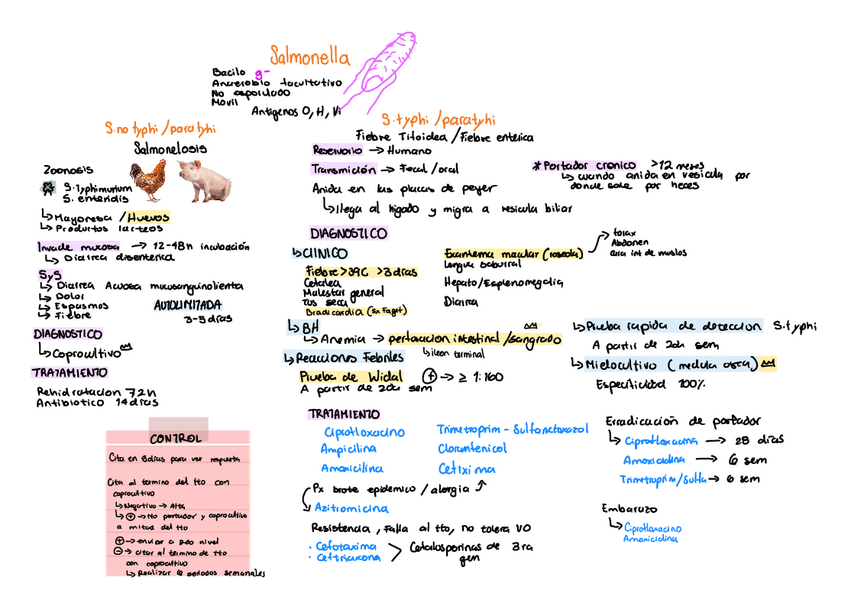 Salmonella
Bacilo g-
Anaerobio facultativo
No esporulado
Movil
Antígenos O, H, Vi
S. no typhi / paratyhi
Salmonelosis
Zoonosis
S. Typhimurium
S. enteridis
↳ Mayonesa / Huevos
↳ Productos lacteos
Invade mucosa → 12-48h incubación
↳ Diarrea disenterica
SyS
↳ Diarrea Acuosa mucosanguinolienta
↳ Dolor
↳ Espasmos
↳ Fiebre
AUTOLIMITADA
3-5 días
DIAGNOSTICO
↳ Coprocultivo
TRATAMIENTO
Rehidratacion 72h
Antibiotico 14 días
CONTROL
Cita en 8 días para ver respuesta
Cita al termino del tto con
coprocultivo
↳ Negativo → Alta
↳ + → tto portador y coprocultivo
a mitad del tto
+ → enviar a 2do nivel
- → citar al termino de tto
con coprocultivo
↳ Realizar periodos semanales
S. typhi / paratyhi
Fiebre Tifoidea / Fiebre enterica
Reservorio → Humano
Transmición → Fecal / oral
Anida en las placas de peyer
↳ llega al higado y migra a vesicula biliar
* Portador cronico > 12 meses
↳ cuando anida en vesicula por
donde sale por heces
DIAGNOSTICO
↳ CLINICO
Fiebre > 39C > 3 días
Cefalea
Malestar general
Tos seca
Bradicardia (Sx Faget)
Exantema macular (roseola)
torax
Abdomen
cara int de muslos
Lengua saburral
Hepato/Esplenomegalia
Diarrea
↳ BH
↳ Anemia → perforacion intestinal / sangrado
↳ ileon terminal
↳ Reacciones Febriles
Prueba de Widal + → ≥ 1:160
A partir de 2da sem
↳ Prueba rapida de deteccion S. typhi
A partir de 2da sem
↳ Mielocultivo (medula osea)
Especificidad 100%
TRATAMIENTO
Ciprofloxacino
Ampicilina
Amoxicilina
Trimetroprim - Sulfametoxazol
Cloranfenicol
Cefixima
Px brote epidemico / alergia
Azitromicina
Resistencia, Falla al tto, no tolera VO
· Cefotaxima
· Ceftriaxona
> Cefalosporinas de 3ra
gen
Erradicación de portador
↳ Ciprofloxacina → 28 dias
Amoxicilina → 6 sem
Trimetroprim/sulfa → 6 sem
Embarazo
↳ Ciprofloxacino
Amoxicilina